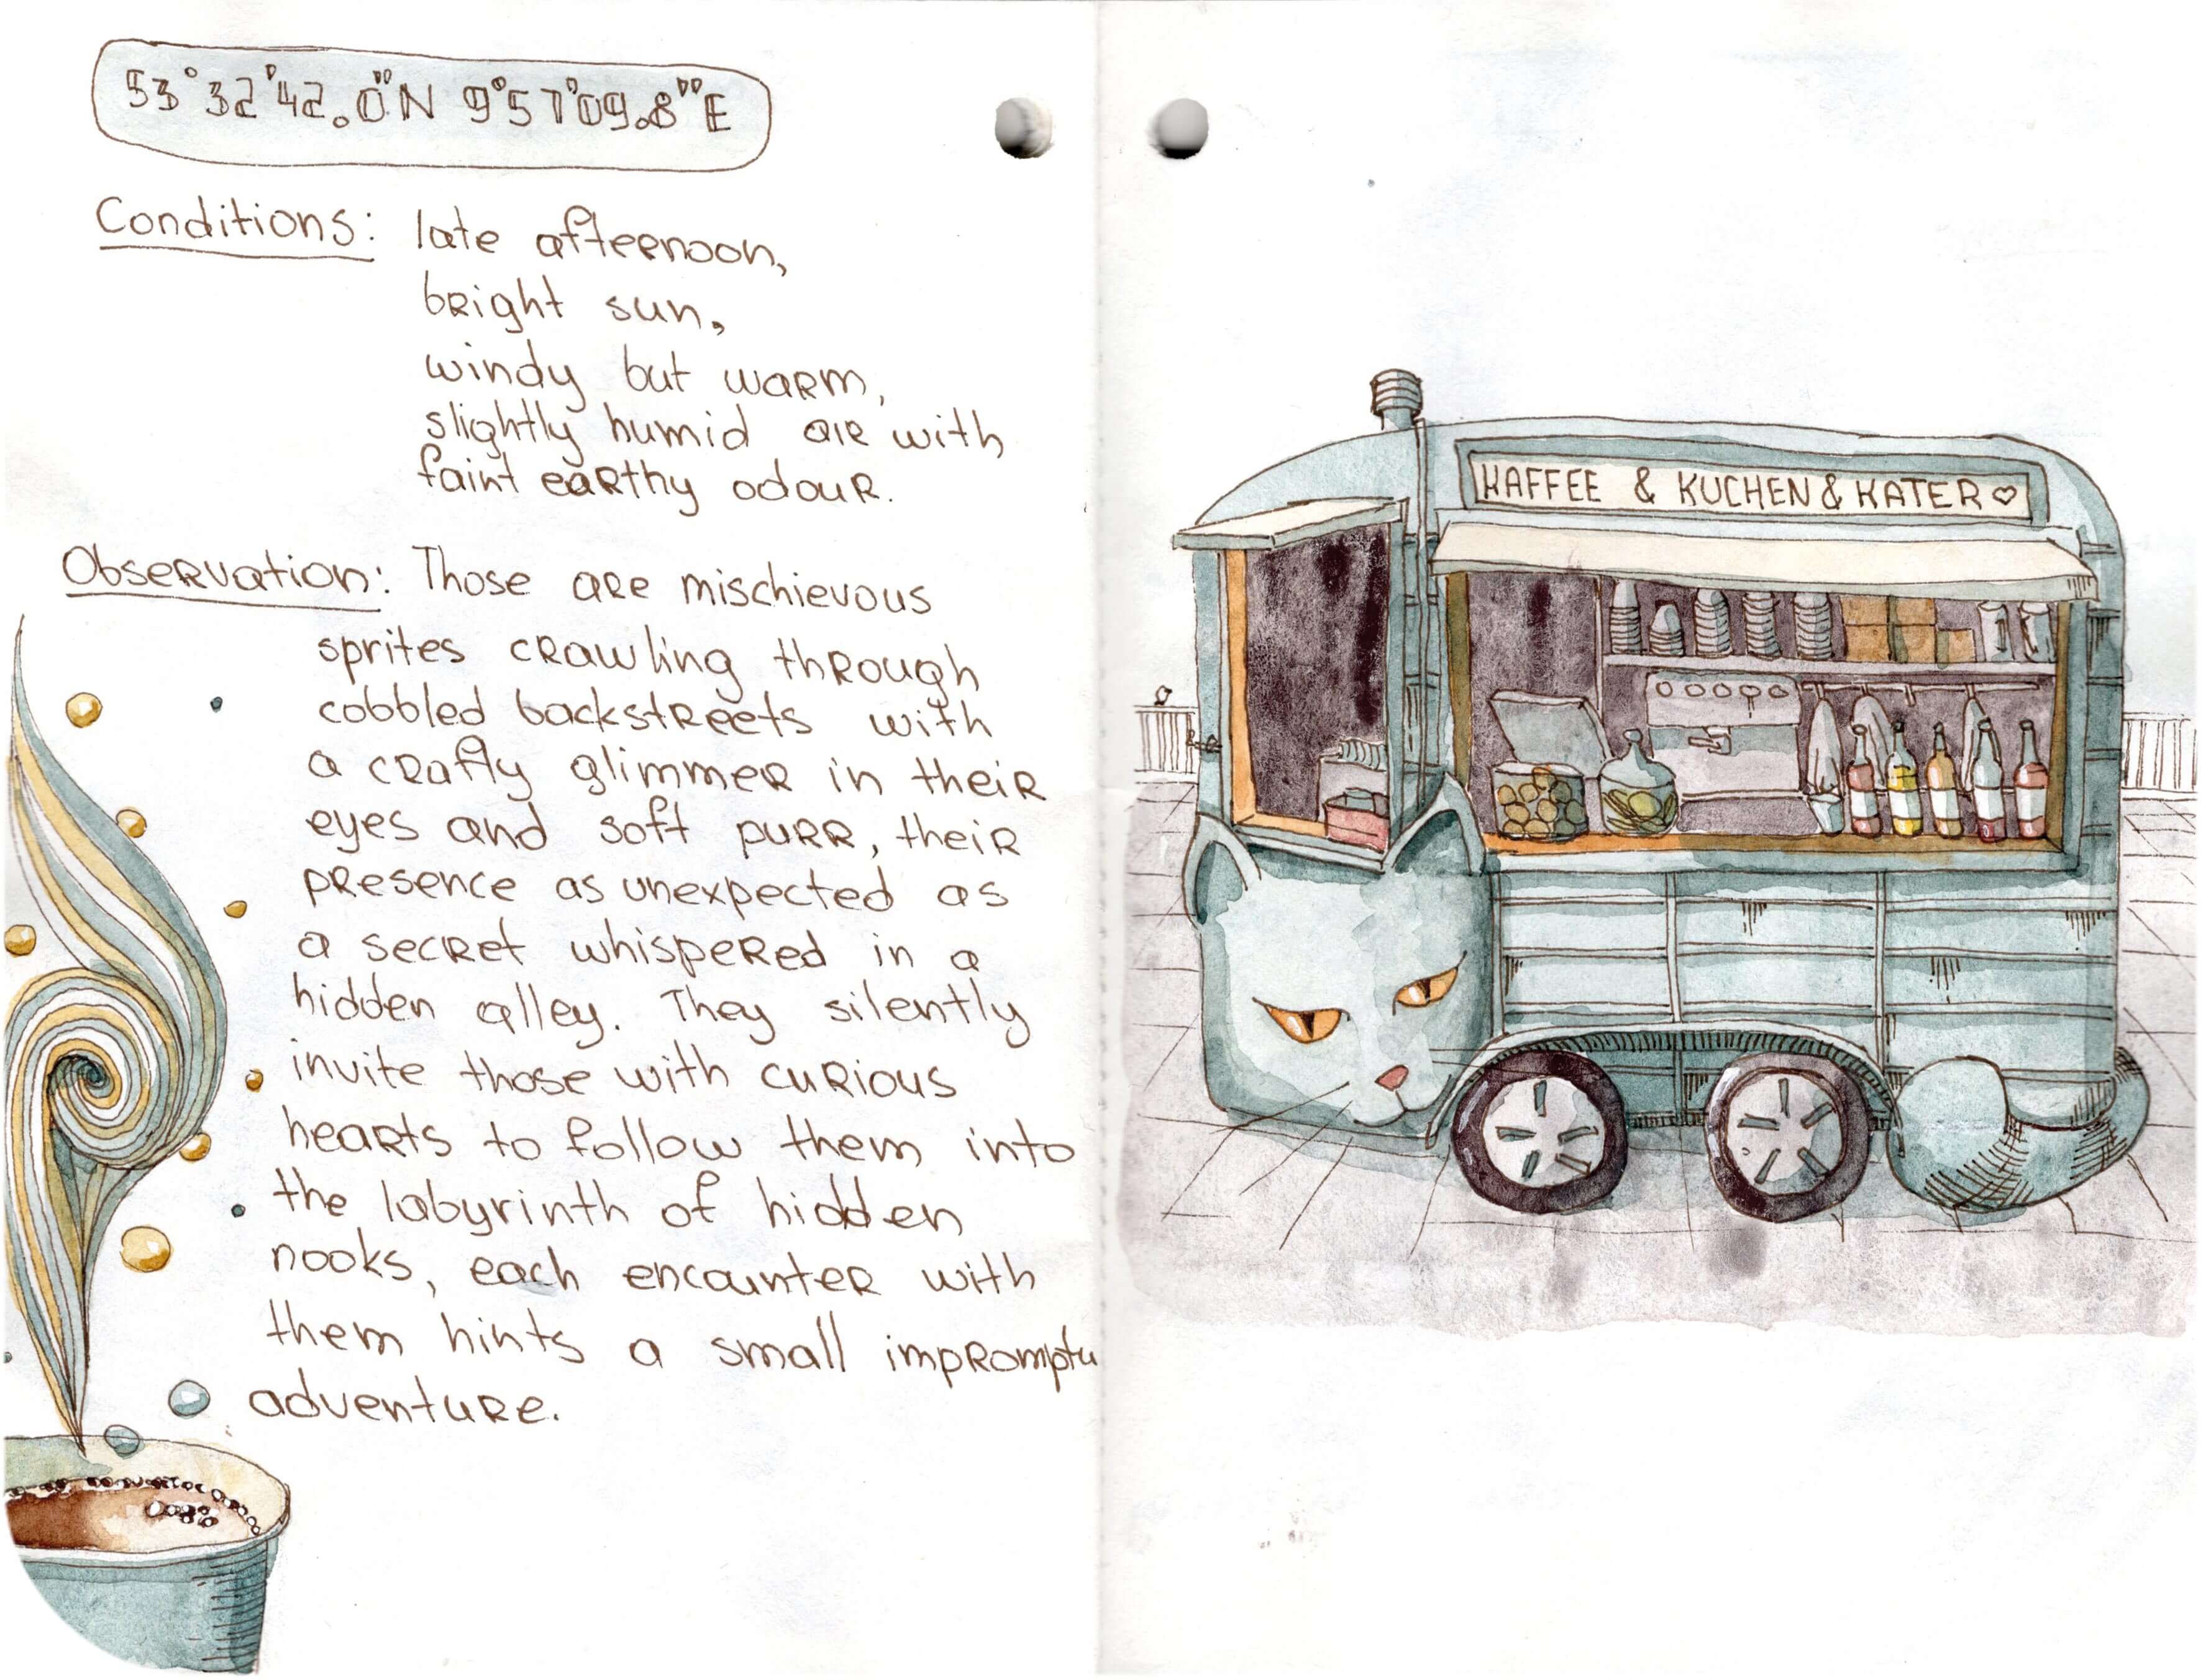 53°32'42.0"N 9°57'09.8"E
Conditions: late afternoon,
bright sun,
windy but warm,
slightly humid air with
faint earthy odour.
Observation: Those are mischievous
sprites crawling through
cobbled backstreets with
a crafty glimmer in their
eyes and soft purr, their
presence as unexpected as
a secret whispered in a
hidden alley. They silently
invite those with curious
hearts to follow them into
the labyrinth of hidden
nooks, each encounter with
them hints a small impromptu
adventure.
KAFFEE & KUCHEN & KATER ♡